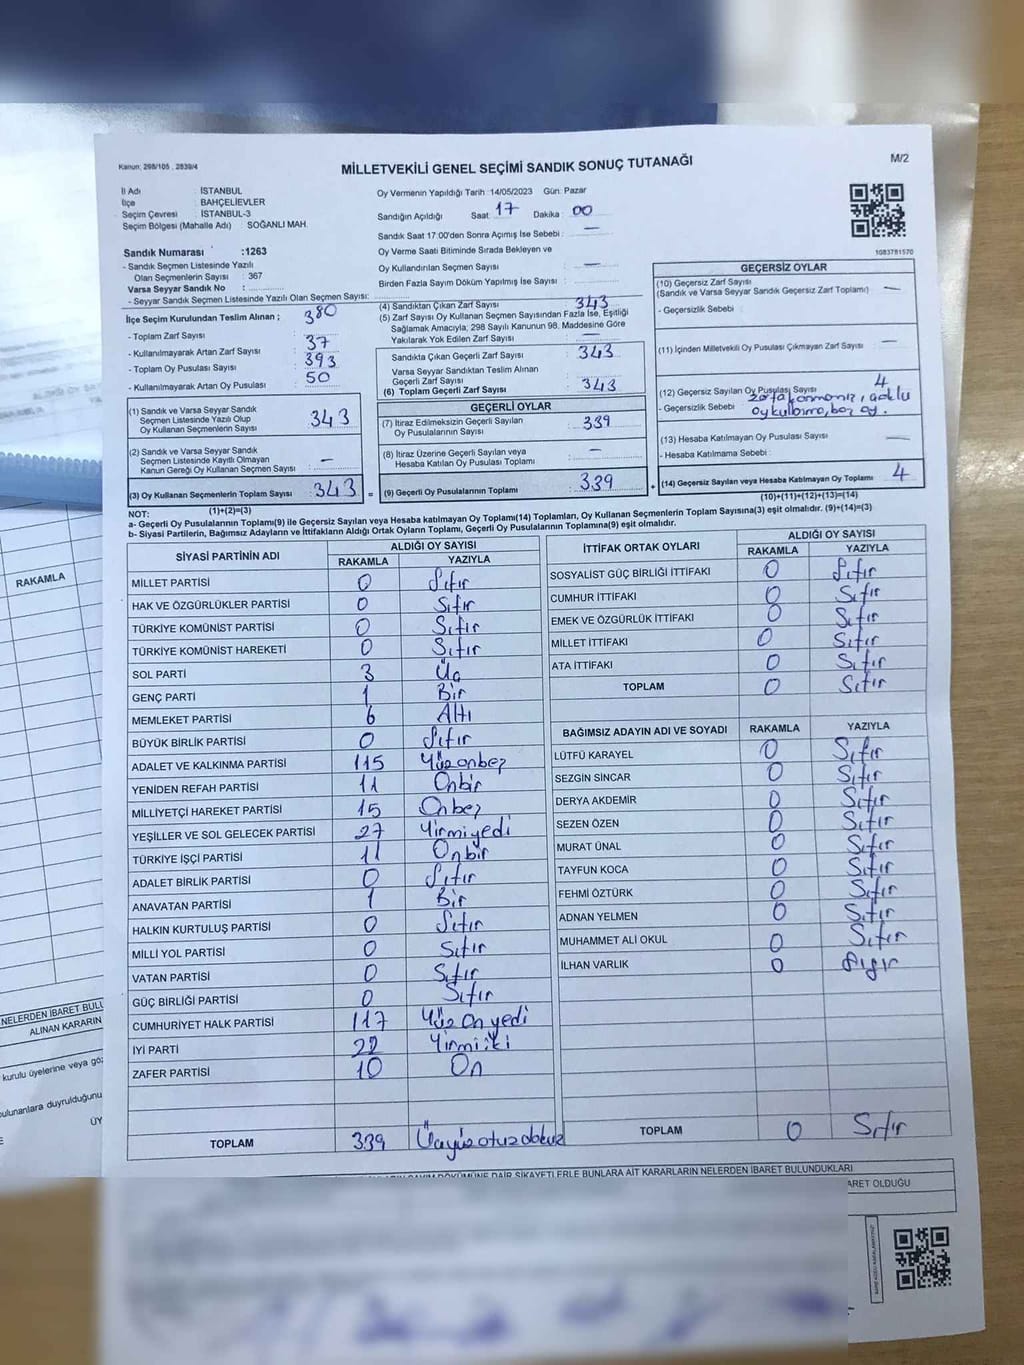 Kanun: 298/105 , 2839/4
MİLLETVEKİLİ GENEL SEÇİMİ SANDIK SONUÇ TUTANAĞI
M/2
İl Adı : İSTANBUL
İlçe : BAHÇELİEVLER
Seçim Çevresi : İSTANBUL-3
Seçim Bölgesi (Mahalle Adı) : SOĞANLI MAH.
Oy Vermenin Yapıldığı Tarih :14/05/2023 Gün: Pazar
Sandığın Açıldığı Saat 17 Dakika 00
Sandık Saat 17:00'den Sonra Açımış İse Sebebi : —
Oy Verme Saati Bitiminde Sırada Bekleyen ve
Oy Kullandırılan Seçmen Sayısı : —
Birden Fazla Sayım Döküm Yapılmış İse Sayısı :
1083781570
Sandık Numarası :1263
- Sandık Seçmen Listesinde Yazılı
Olan Seçmenlerin Sayısı : 367
Varsa Seyyar Sandık No :
- Seyyar Sandık Seçmen Listesinde Yazılı Olan Seçmen Sayısı:
İlçe Seçim Kurulundan Teslim Alınan ; 380
- Toplam Zarf Sayısı : 37
- Kullanılmayarak Artan Zarf Sayısı : 393
- Toplam Oy Pusulası Sayısı : 50
- Kullanılmayarak Artan Oy Pusulası :
(1) Sandık ve Varsa Seyyar Sandık
Seçmen Listesinde Yazılı Olup
Oy Kullanan Seçmenlerin Sayısı : 343
(2) Sandık ve Varsa Seyyar Sandık
Seçmen Listesinde Kayıtlı Olmayan
Kanun Gereği Oy Kullanan Seçmen Sayısı : —
(3) Oy Kullanan Seçmenlerin Toplam Sayısı : 343 =
(4) Sandıktan Çıkan Zarf Sayısı : 343
(5) Zarf Sayısı Oy Kullanan Seçmen Sayısından Fazla İse, Eşitliği
Sağlamak Amacıyla; 298 Sayılı Kanunun 98. Maddesine Göre
Yakılarak Yok Edilen Zarf Sayısı : —
Sandıkta Çıkan Geçerli Zarf Sayısı : 343
Varsa Seyyar Sandıktan Teslim Alınan
Geçerli Zarf Sayısı :
(6) Toplam Geçerli Zarf Sayısı : 343
GEÇERLİ OYLAR
(7) İtiraz Edilmeksizin Geçerli Sayılan
Oy Pusulalarının Sayısı : 339
(8) İtiraz Üzerine Geçerli Sayılan veya
Hesaba Katılan Oy Pusulası Toplamı : —
(9) Geçerli Oy Pusulalarının Toplamı : 339 +
GEÇERSİZ OYLAR
(10) Geçersiz Zarf Sayısı
(Sandık ve Varsa Seyyar Sandık Geçersiz Zarf Toplamı) : —
- Geçersizlik Sebebi :
(11) İçinden Milletvekili Oy Pusulası Çıkmayan Zarf Sayısı : —
(12) Geçersiz Sayılan Oy Pusulası Sayısı : 4
- Geçersizlik Sebebi
oy kullanma, boş oy.
(13) Hesaba Katılmayan Oy Pusulası Sayısı : —
- Hesaba Katılmama Sebebi :
(14) Geçersiz Sayılan veya Hesaba Katılmayan Oy Toplamı : 4
NOT: (1)+(2)=(3)
(10)+(11)+(12)+(13)=(14)
a- Geçerli Oy Pusulalarının Toplamı(9) ile Geçersiz Sayılan veya Hesaba katılmayan Oy Toplamı(14) Toplamları, Oy Kullanan Seçmenlerin Toplam Sayısına(3) eşit olmalıdır. (9)+(14)=(3)
b- Siyasi Partilerin, Bağımsız Adayların ve İttifakların Aldığı Ortak Oyların Toplamı, Geçerli Oy Pusulalarının Toplamına(9) eşit olmalıdır.
SİYASİ PARTİNİN ADI ALDIĞI OY SAYISI
RAKAMLA YAZIYLA
MİLLET PARTİSİ 0 Sıfır
HAK VE ÖZGÜRLÜKLER PARTİSİ 0 Sıfır
TÜRKİYE KOMÜNİST PARTİSİ 0 Sıfır
TÜRKİYE KOMÜNİST HAREKETİ 0 Sıfır
SOL PARTİ 3 Üç
GENÇ PARTİ 1 Bir
MEMLEKET PARTİSİ 6 Altı
BÜYÜK BİRLİK PARTİSİ 0 Sıfır
ADALET VE KALKINMA PARTİSİ 115 Yüz onbeş
YENİDEN REFAH PARTİSİ 11 Onbir
MİLLİYETÇİ HAREKET PARTİSİ 15 Onbeş
YEŞİLLER VE SOL GELECEK PARTİSİ 27 Yirmiyedi
TÜRKİYE İŞÇİ PARTİSİ 11 Onbir
ADALET BİRLİK PARTİSİ 0 Sıfır
ANAVATAN PARTİSİ 1 Bir
HALKIN KURTULUŞ PARTİSİ 0 Sıfır
MİLLİ YOL PARTİSİ 0 Sıfır
VATAN PARTİSİ 0 Sıfır
GÜÇ BİRLİĞİ PARTİSİ 0 Sıfır
CUMHURİYET HALK PARTİSİ 117 Yüz On yedi
İYİ PARTİ 22 Yirmi iki
ZAFER PARTİSİ 10 On
TOPLAM 339 Üçyüzotuzdokuz
İTTİFAK ORTAK OYLARI ALDIĞI OY SAYISI
RAKAMLA YAZIYLA
SOSYALİST GÜÇ BİRLİĞİ İTTİFAKI 0 Sıfır
CUMHUR İTTİFAKI 0 Sıfır
EMEK VE ÖZGÜRLÜK İTTİFAKI 0 Sıfır
MİLLET İTTİFAKI 0 Sıfır
ATA İTTİFAKI 0 Sıfır
TOPLAM 0 Sıfır
BAĞIMSIZ ADAYIN ADI VE SOYADI RAKAMLA YAZIYLA
LÜTFÜ KARAYEL 0 Sıfır
SEZGİN SİNCAR 0 Sıfır
DERYA AKDEMİR 0 Sıfır
SEZEN ÖZEN 0 Sıfır
MURAT ÜNAL 0 Sıfır
TAYFUN KOCA 0 Sıfır
FEHMİ ÖZTÜRK 0 Sıfır
ADNAN YELMEN 0 Sıfır
MUHAMMET ALİ OKUL 0 Sıfır
İLHAN VARLIK 0 Sıfır
TOPLAM 0 Sıfır
DÖKÜMÜNE DAİR ŞİKAYETLERLE BUNLARA AİT KARARLARIN NELERDEN İBARET BULUNDUKLARI
ARET OLDUĞU
RAKAMLA
NELERDEN İBARET BULU
ALINAN KARARIN
kurulu üyelerine veya gö
ulunanlara duyrulduğunu
ÜY